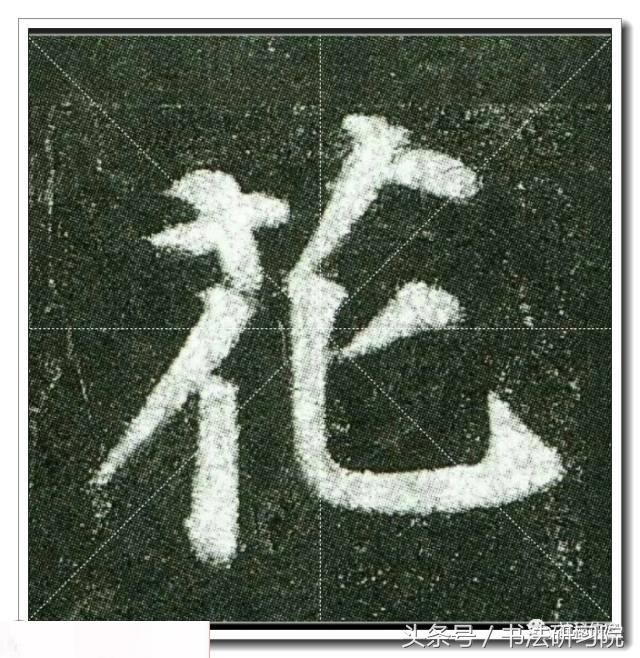 花
头条号 / 书法研习院